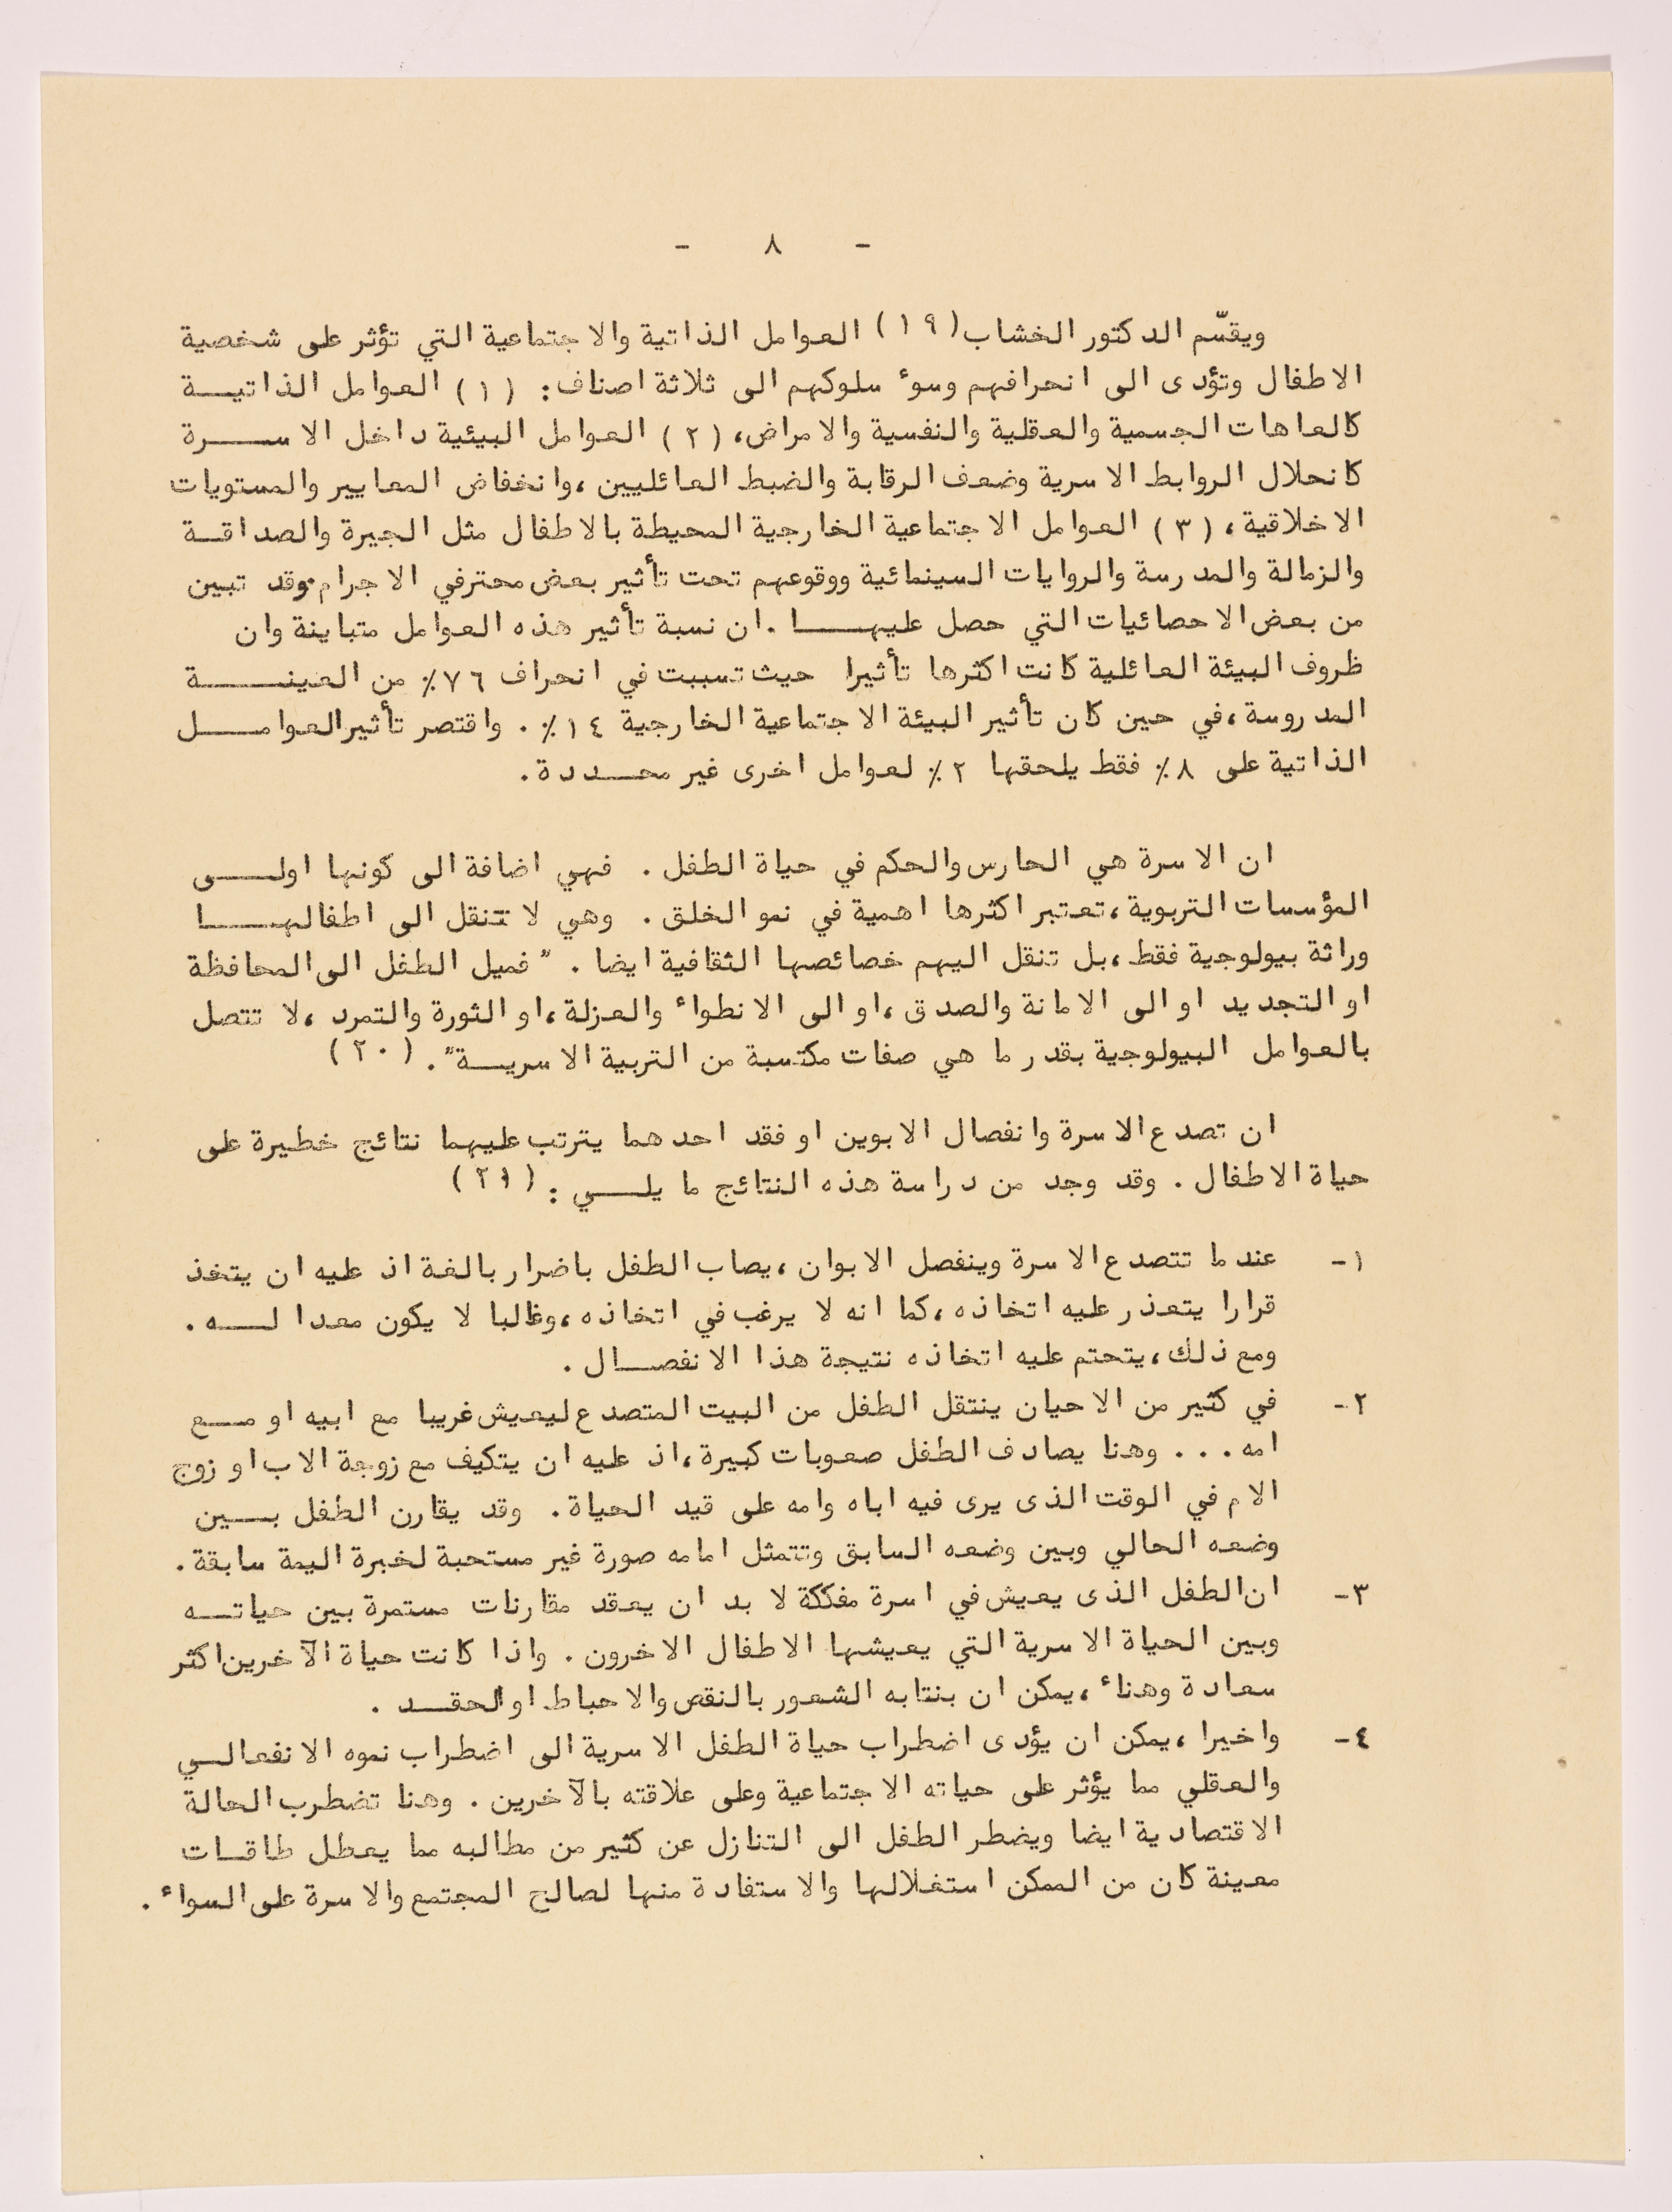 - ٨ -
ويقسّم الدكتور الخشاب (١٩) العوامل الذاتية والاجتماعية التي تؤثر على شخصية
الاطفال وتؤدى الى انحرافهم وسوء سلوكهم الى ثلاثة اصناف: (١) العوامل الذاتيـــة
كالعاهات الجسمية والعقلية والنفسية والامراض، (٢) العوامل البيئية داخل الاســـرة
كانحلال الروابط الاسرية وضعف الرقابة والضبط العائليين، وانخفاض المعايير والمستويات
الاخلاقية، (٣) العوامل الاجتماعية الخارجية المحيطة بالاطفال مثل الجيرة والصداقـــة
والزمالة والمدرسة والروايات السينمائية ووقوعهم تحت تأثير بعض محترفي الاجرام. وقد تبين
من بعض الاحصائيات التي حصل عليهـــا . ان نسبة تأثير هذه العوامل متباينة وان
ظروف البيئة العائلية كانت اكثرها تأثيرا حيث تسببت في انحراف ٧٦٪ من العينـــة
المدروسة، في حين كان تأثير البيئة الاجتماعية الخارجية ١٤٪ . واقتصر تأثير العوامـــل
الذاتية على ٨٪ فقط يلحقها ٢٪ لعوامل اخرى غير محـــددة .
ان الاسرة هي الحارس والحكم في حياة الطفل . فهي اضافة الى كونها اولـــى
المؤسسات التربوية، تعتبر اكثرها اهمية في نمو الخلق . وهي لا تنقل الى اطفالهـــا
وراثة بيولوجية فقط، بل تنقل اليهم خصائصها الثقافية ايضا . " فميل الطفل الى المحافظة
او التجديد او الى الامانة والصدق، او الى الانطواء والعزلة، او الثورة والتمرد، لا تتصل
بالعوامل البيولوجية بقدر ما هي صفات مكتسبة من التربية الاسريـــة" . (٢٠)
ان تصدع الاسرة وانفصال الابوين او فقد احدهما يترتب عليهما نتائج خطيرة على
حياة الاطفال . وقد وجد من دراسة هذه النتائج ما يلـــي : (٢١)
١- عندما تتصدع الاسرة وينفصل الابوان، يصاب الطفل باضرار بالغة اذ عليه ان يتخذ
قرارا يتعذر عليه اتخاذه، كما انه لا يرغب في اتخاذه، وغالبا لا يكون معدا لـــه .
ومع ذلك، يتحتم عليه اتخاذه نتيجة هذا الانفصـــال .
٢- في كثير من الاحيان ينتقل الطفل من البيت المتصدع ليعيش غريبا مع ابيه او مـــع
امه . . . وهنا يصادف الطفل صعوبات كبيرة، اذ عليه ان يتكيف مع زوجة الاب او زوج
الام في الوقت الذى يرى فيه اباه وامه على قيد الحياة . وقد يقارن الطفل بـــين
وضعه الحالي وبين وضعه السابق وتتمثل امامه صورة غير مستحبة لخبرة اليمة سابقة .
٣- ان الطفل الذى يعيش في اسرة مفككة لا بد ان يعقد مقارنات مستمرة بين حياتـــه
وبين الحياة الاسرية التي يعيشها الاطفال الاخرون . واذا كانت حياة الآخرين اكثر
سعادة وهناء، يمكن ان بنتابه الشعور بالنقص والاحباط او الحقـــد .
٤- واخيرا، يمكن ان يؤدى اضطراب حياة الطفل الاسرية الى اضطراب نموه الانفعالـــي
والعقلي مما يؤثر على حياته الاجتماعية وعلى علاقته بالآخرين . وهنا تضطرب الحالة
الاقتصادية ايضا ويضطر الطفل الى التنازل عن كثير من مطالبه مما يعطل طاقـــات
معينة كان من الممكن استغلالها والاستفادة منها لصالح المجتمع والاسرة على السواء .